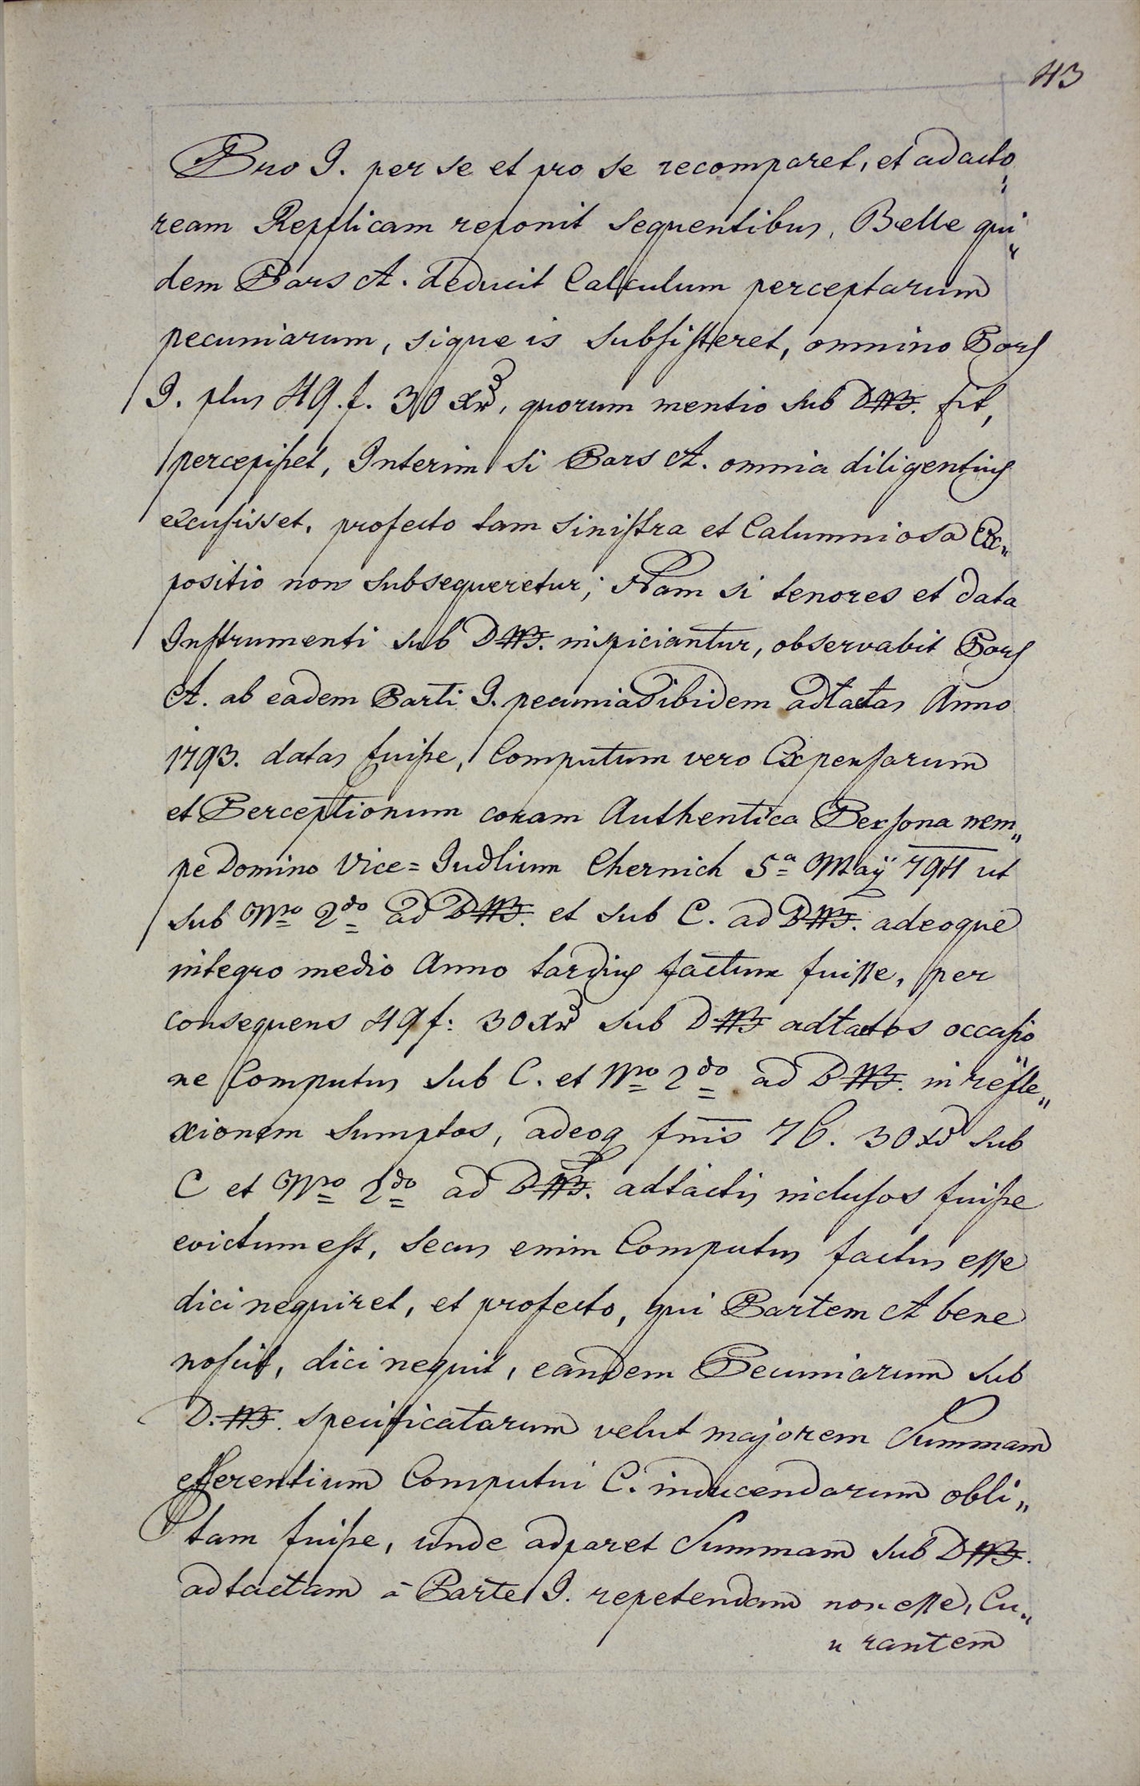 43
Pro I. per se et pro se recomparet, et ad acto„
ream Replicam reponit sequentibus, Belle qui„
dem Pars A. deducit Calculum perceptarum
pecuniarum, sique is subsisteret, omnino Pars
I. plus 49.f. 30 xr, quorum mentio sub D fit,
percepisset, Interim si Pars A. omnia diligentius
excusisset, profecto tam sinistra et Calumniosa Ex„
positio non subsequeretur; Nam si tenores et data
Instrumenti sub D inspiciantur, observabit Pars
A. ab eadem Parti I. pecunias ibidem adtactas Anno
1793. datas fuisse, Computum vero Expensarum
et Perceptionum coram Authentica Persona nem„
pe Domino Vice=Judlium Chernich 5a May 794 ut
sub Nro 2do ad B et sub C. ad B adeoque
integro medio Anno tardius factum fuisse, per
consequens 49f: 30xr sub D adtactos occasio
ne Computus sub C. et Nro 2do ad B in refle„
xionem sumptos, adeoq fnis 76. 30xr sub
C et Nro 2do ad B adtactis inclusos fuisse
evictum est, secus enim Computus factus esse
dici nequiret, et profecto, qui Partem A bene
noscit, dici nequit, eandem Pecuniarum sub
D. specificatarum velut majorem Summam
efferentium Computui C. inducendarum obli„
tam fuisse, unde adparet Summam sub D
adtactam à Parte I. repetendam non esse, Cu„
„ rantem